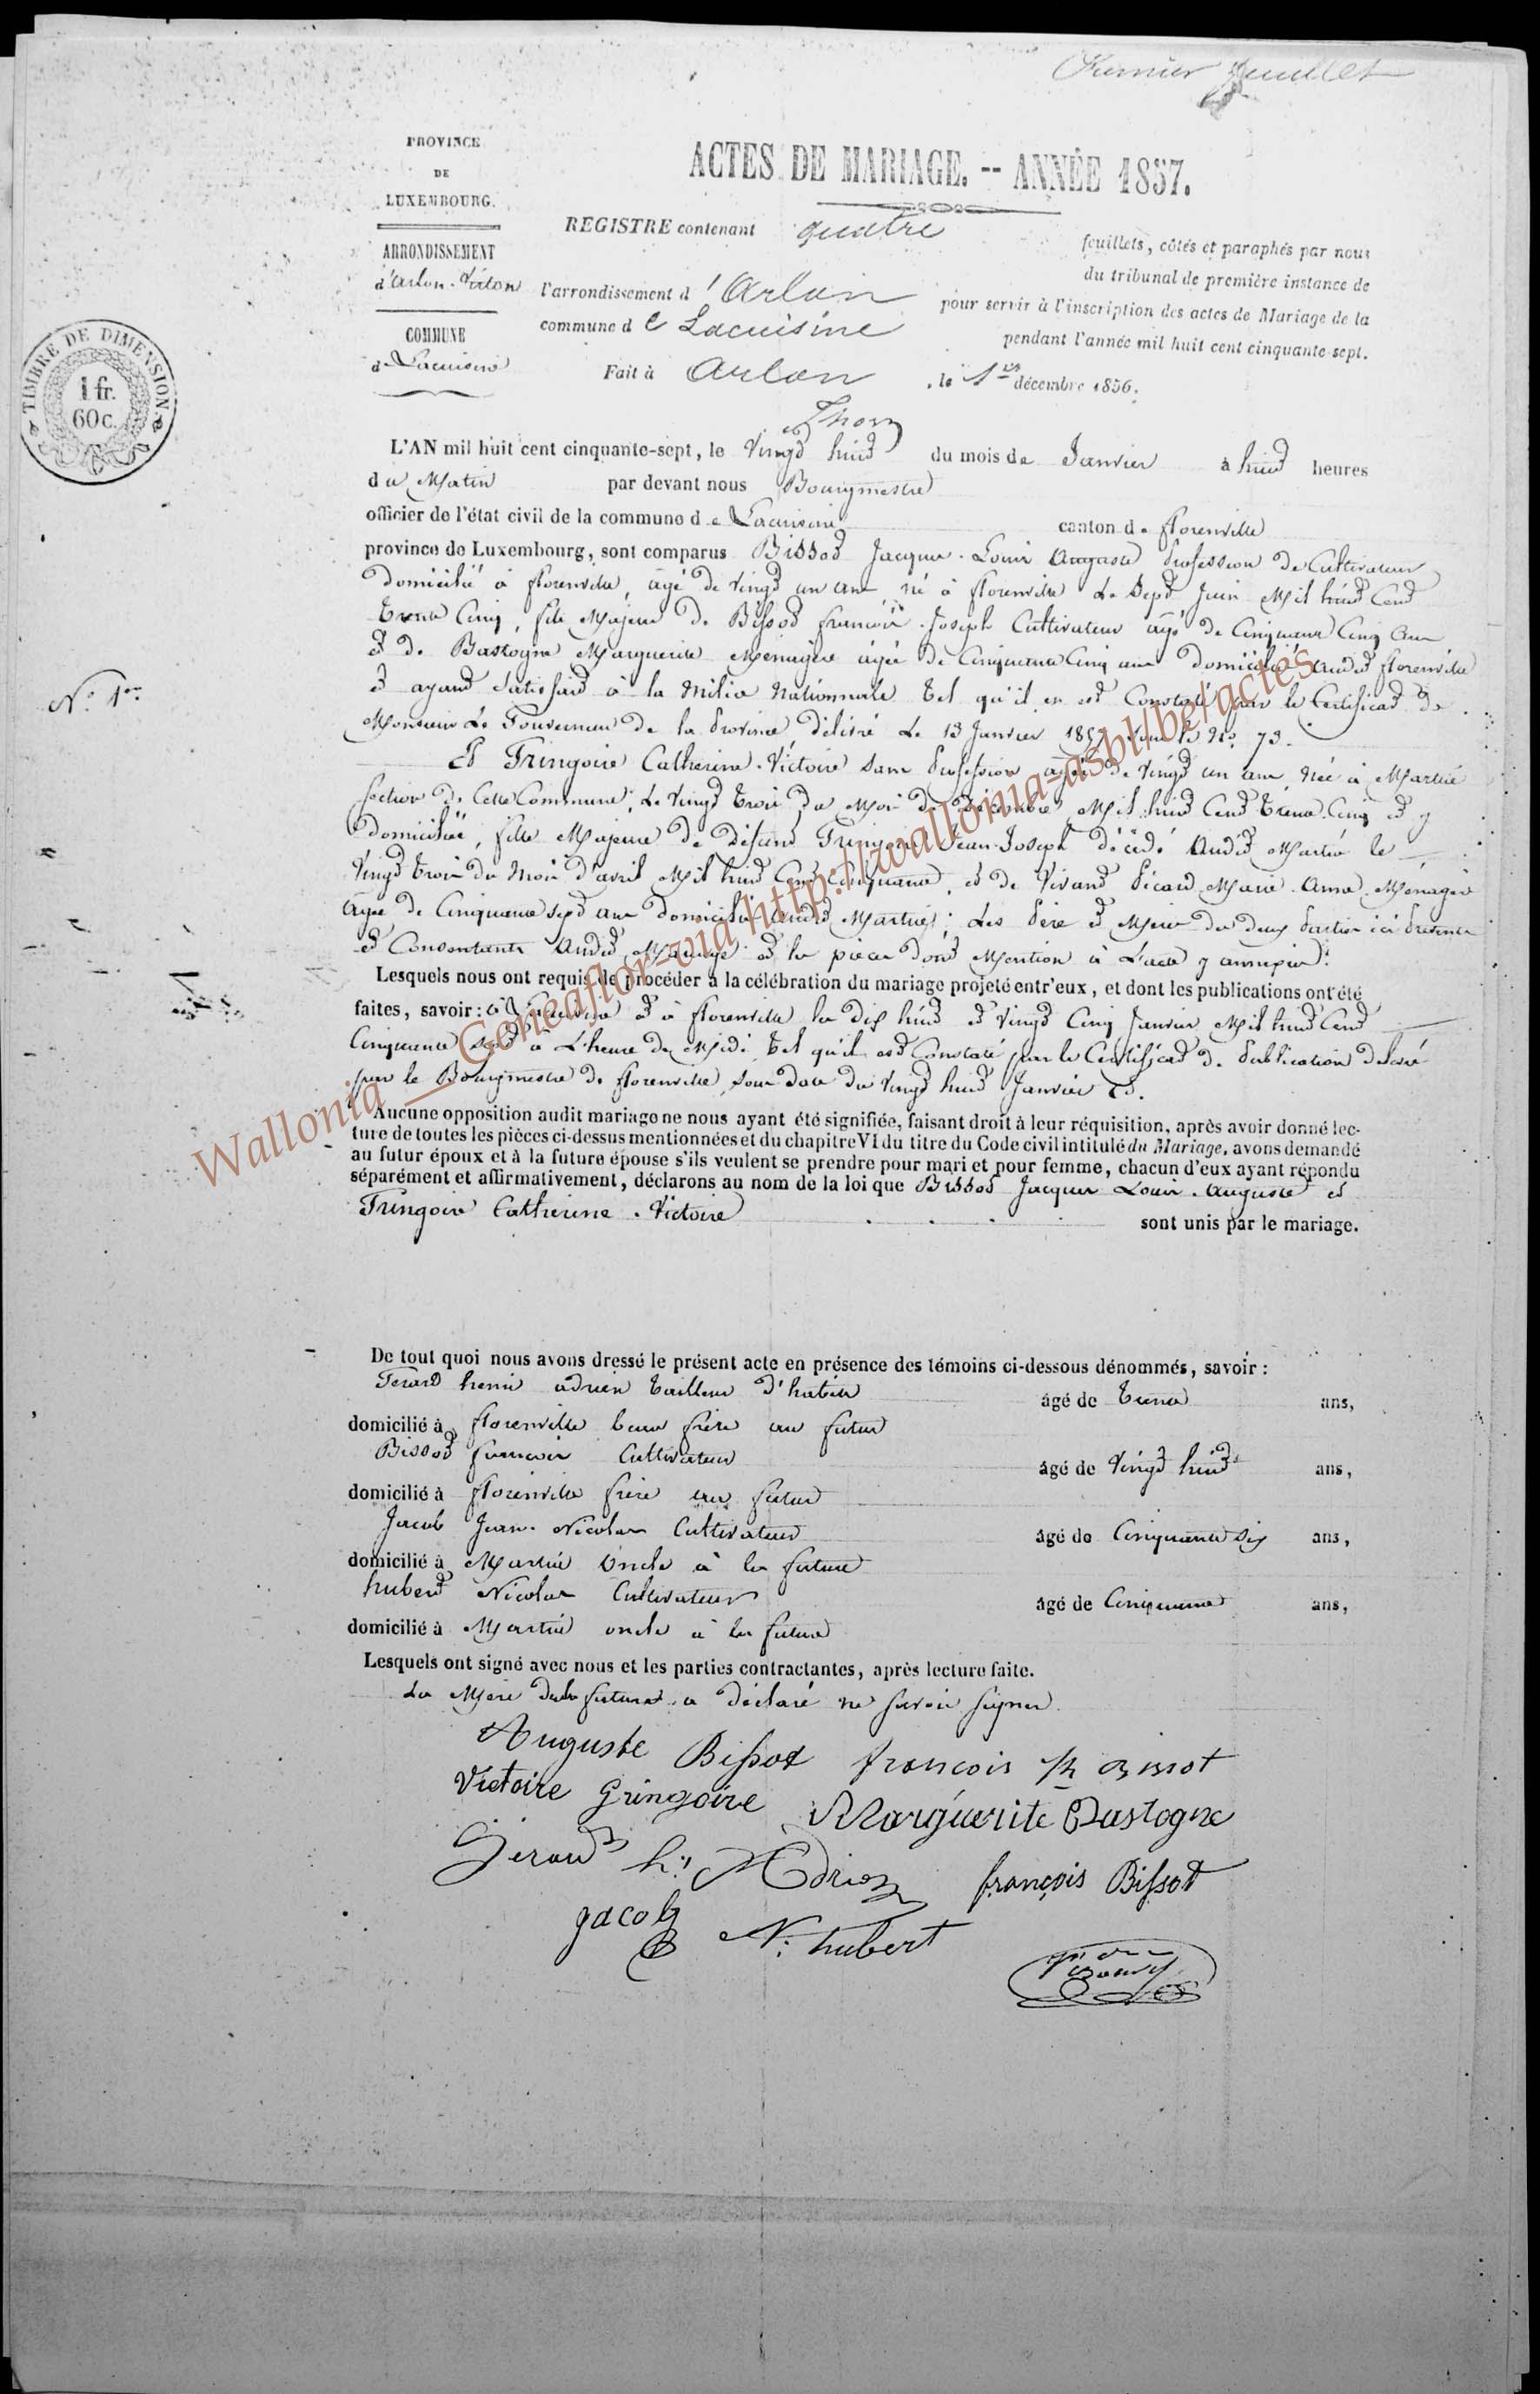 Premier feuillet
PROVINCE
DE
LUXEMBOURG.
ARRONDISSEMENT
d'Arlon-Virton
COMMUNE
de Lacuisine
TIMBRE DE DIMENSION
1 fr.
60 c.
ACTES DE MARIAGE. -- ANNÉE 1857.
REGISTRE contenant quatre feuillets, côtés et paraphés par nous
du tribunal de première instance de
l'arrondissement d'Arlon pour servir à l'inscription des actes de Mariage de la
commune de Lacuisine pendant l'année mil huit cent cinquante-sept.
Fait à Arlon, le 1er décembre 1856.
N° 1er
L'AN mil huit cent cinquante-sept, le Vingt huit du mois de Janvier à huit heures
du Matin par devant nous Bourgmestre
officier de l'état civil de la commune de Lacuisine canton de florenville
province de Luxembourg, sont comparus Bissot Jacques-Louis Auguste Profession de Cultivateur
domicilié à florenville, âgé de vingt un ans né à florenville Le Sept Juin Mil huit Cent
trente Cinq, fils Majeur de Bissot francois-Joseph Cultivateur âgé de Cinquante Cinq Ans
et de Bastogne Marguerite Ménagère âgée de Cinquante Cinq ans domiciliés audit florenville
et ayant Satisfait à la Milice Nationnale tel qu'il en est Constaté par le Certificat de
Monsieur Le Gouverneur de la Province délivré Le 13 Janvier 1857 sous le N° 73.
Et Gringoire Catherine-Victoire Sans Profession âgée de Vingt un ans, Née à Martué
Section de Cette Commune, Le Vingt trois du Mois de Décembre Mil huit Cent trente Cinq et y
domiciliée, fille Majeure de Défunt Gringoire Jean-Joseph décédé Audit Martué le
Vingt trois du Mois d'avril Mil huit Cent Cinquante, et de Vivant Picard Marie-Anne Ménagère
âgée de Cinquante sept ans domiciliée audit Martué; Les Père et Mère des deux Parties ici Présents
et Consentants Audit Mariage et les pièces dont Mention à L'acte y annexées.
Lesquels nous ont requis de procéder à la célébration du mariage projeté entr'eux, et dont les publications ont été
faites, savoir: à Lacuisine et à florenville les dix huit et Vingt Cinq Janvier Mil huit Cent
Cinquante sept à L'heure de Midi tel qu'il est Constaté par le Certificat de Publication délivré
par le Bourgmestre de florenville sous date du Vingt huit Janvier
Aucune opposition audit mariage ne nous ayant été signifiée, faisant droit à leur réquisition, après avoir donné lec-
ture de toutes les pièces ci-dessus mentionnées et du chapitre VI du titre du Code civil intitulé du Mariage, avons demandé
au futur époux et à la future épouse s'ils veulent se prendre pour mari et pour femme, chacun d'eux ayant répondu
séparément et affirmativement, déclarons au nom de la loi que Bissot Jacques Louis-Auguste et
Gringoire Catherine-Victoire sont unis par le mariage.
De tout quoi nous avons dressé le présent acte en présence des témoins ci-dessous dénommés, savoir:
Gerard henri adrien tailleur d'habits âgé de trente ans,
domicilié à florenville beau frère au futur
Bissot francois Cultivateur âgé de Vingt huit ans,
domicilié à florenville frère au futur
Jacob Jean-Nicolas Cultivateur âgé de Cinquante Six ans,
domicilié à Martué Oncle à la future
hubert Nicolas Cultivateur âgé de Cinquante ans,
domicilié à Martué oncle à la future
Lesquels ont signé avec nous et les parties contractantes, après lecture faite.
La Mère de la future a déclaré ne savoir signer.
Auguste Bissot francois Bissot
Victoire Gringoire Marguerite Bastogne
Gerard h. Adrien françois Bissot
Jacob N. hubert
Wallonia _ Geneaflor-via http://wallonia-asbl/be/actes